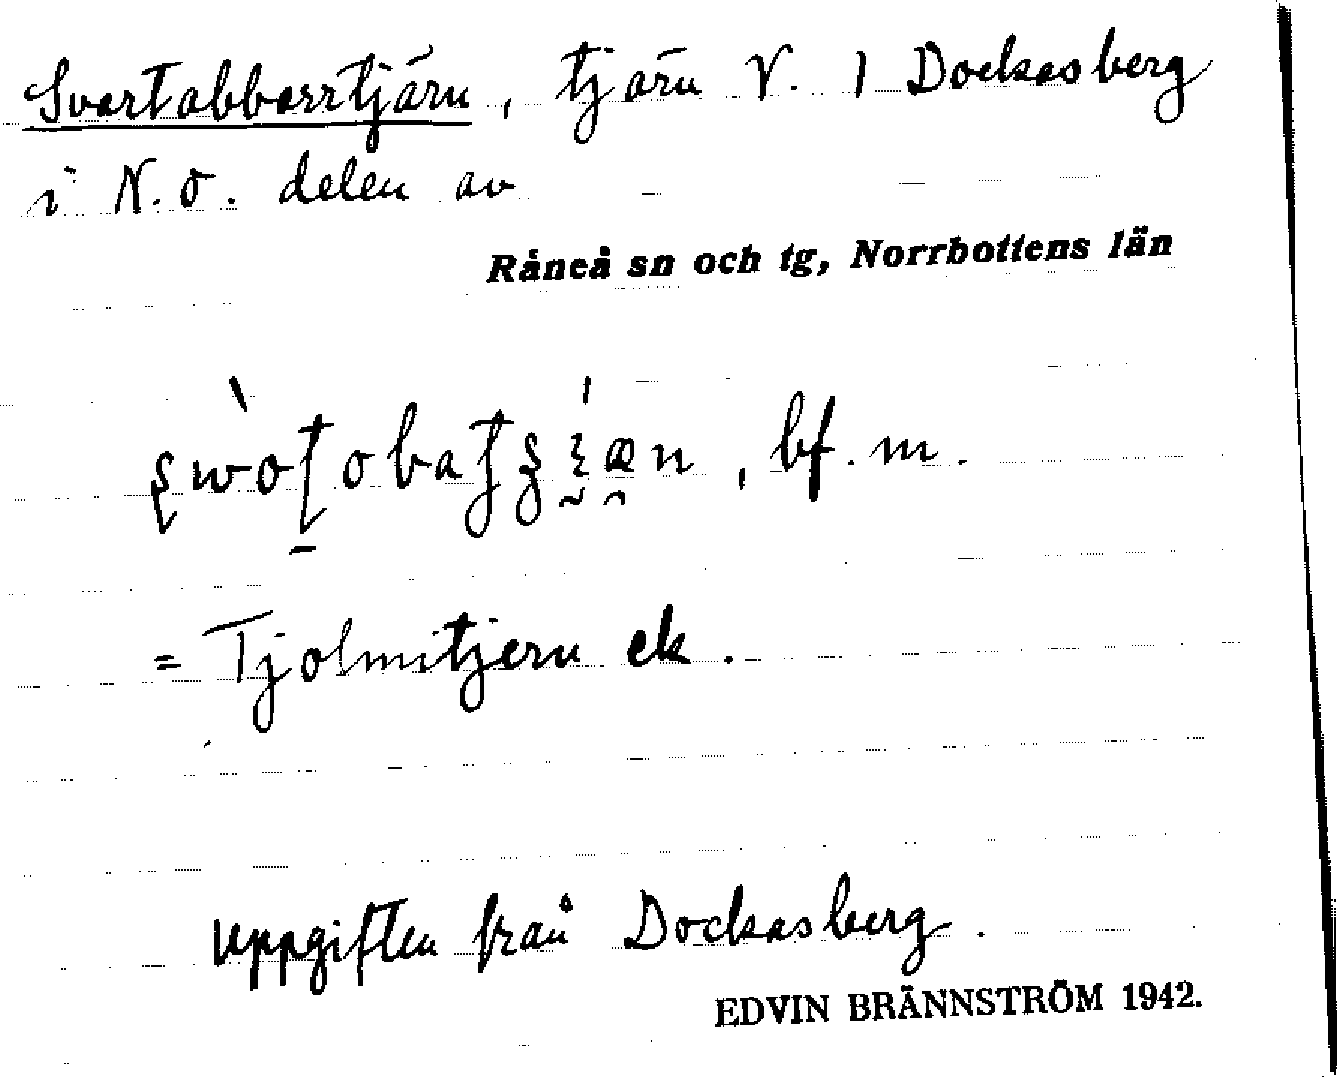 Svartabborrtjärn, tjärn V. 1 Dockasberg
i N.O. delen av
Råneå sn och tg, Norrbottens län
, bf. m.
= Tjolmitjern ek.
Uppgiften från Dockasberg.
EDVIN BRÄNNSTRÖM 1942.